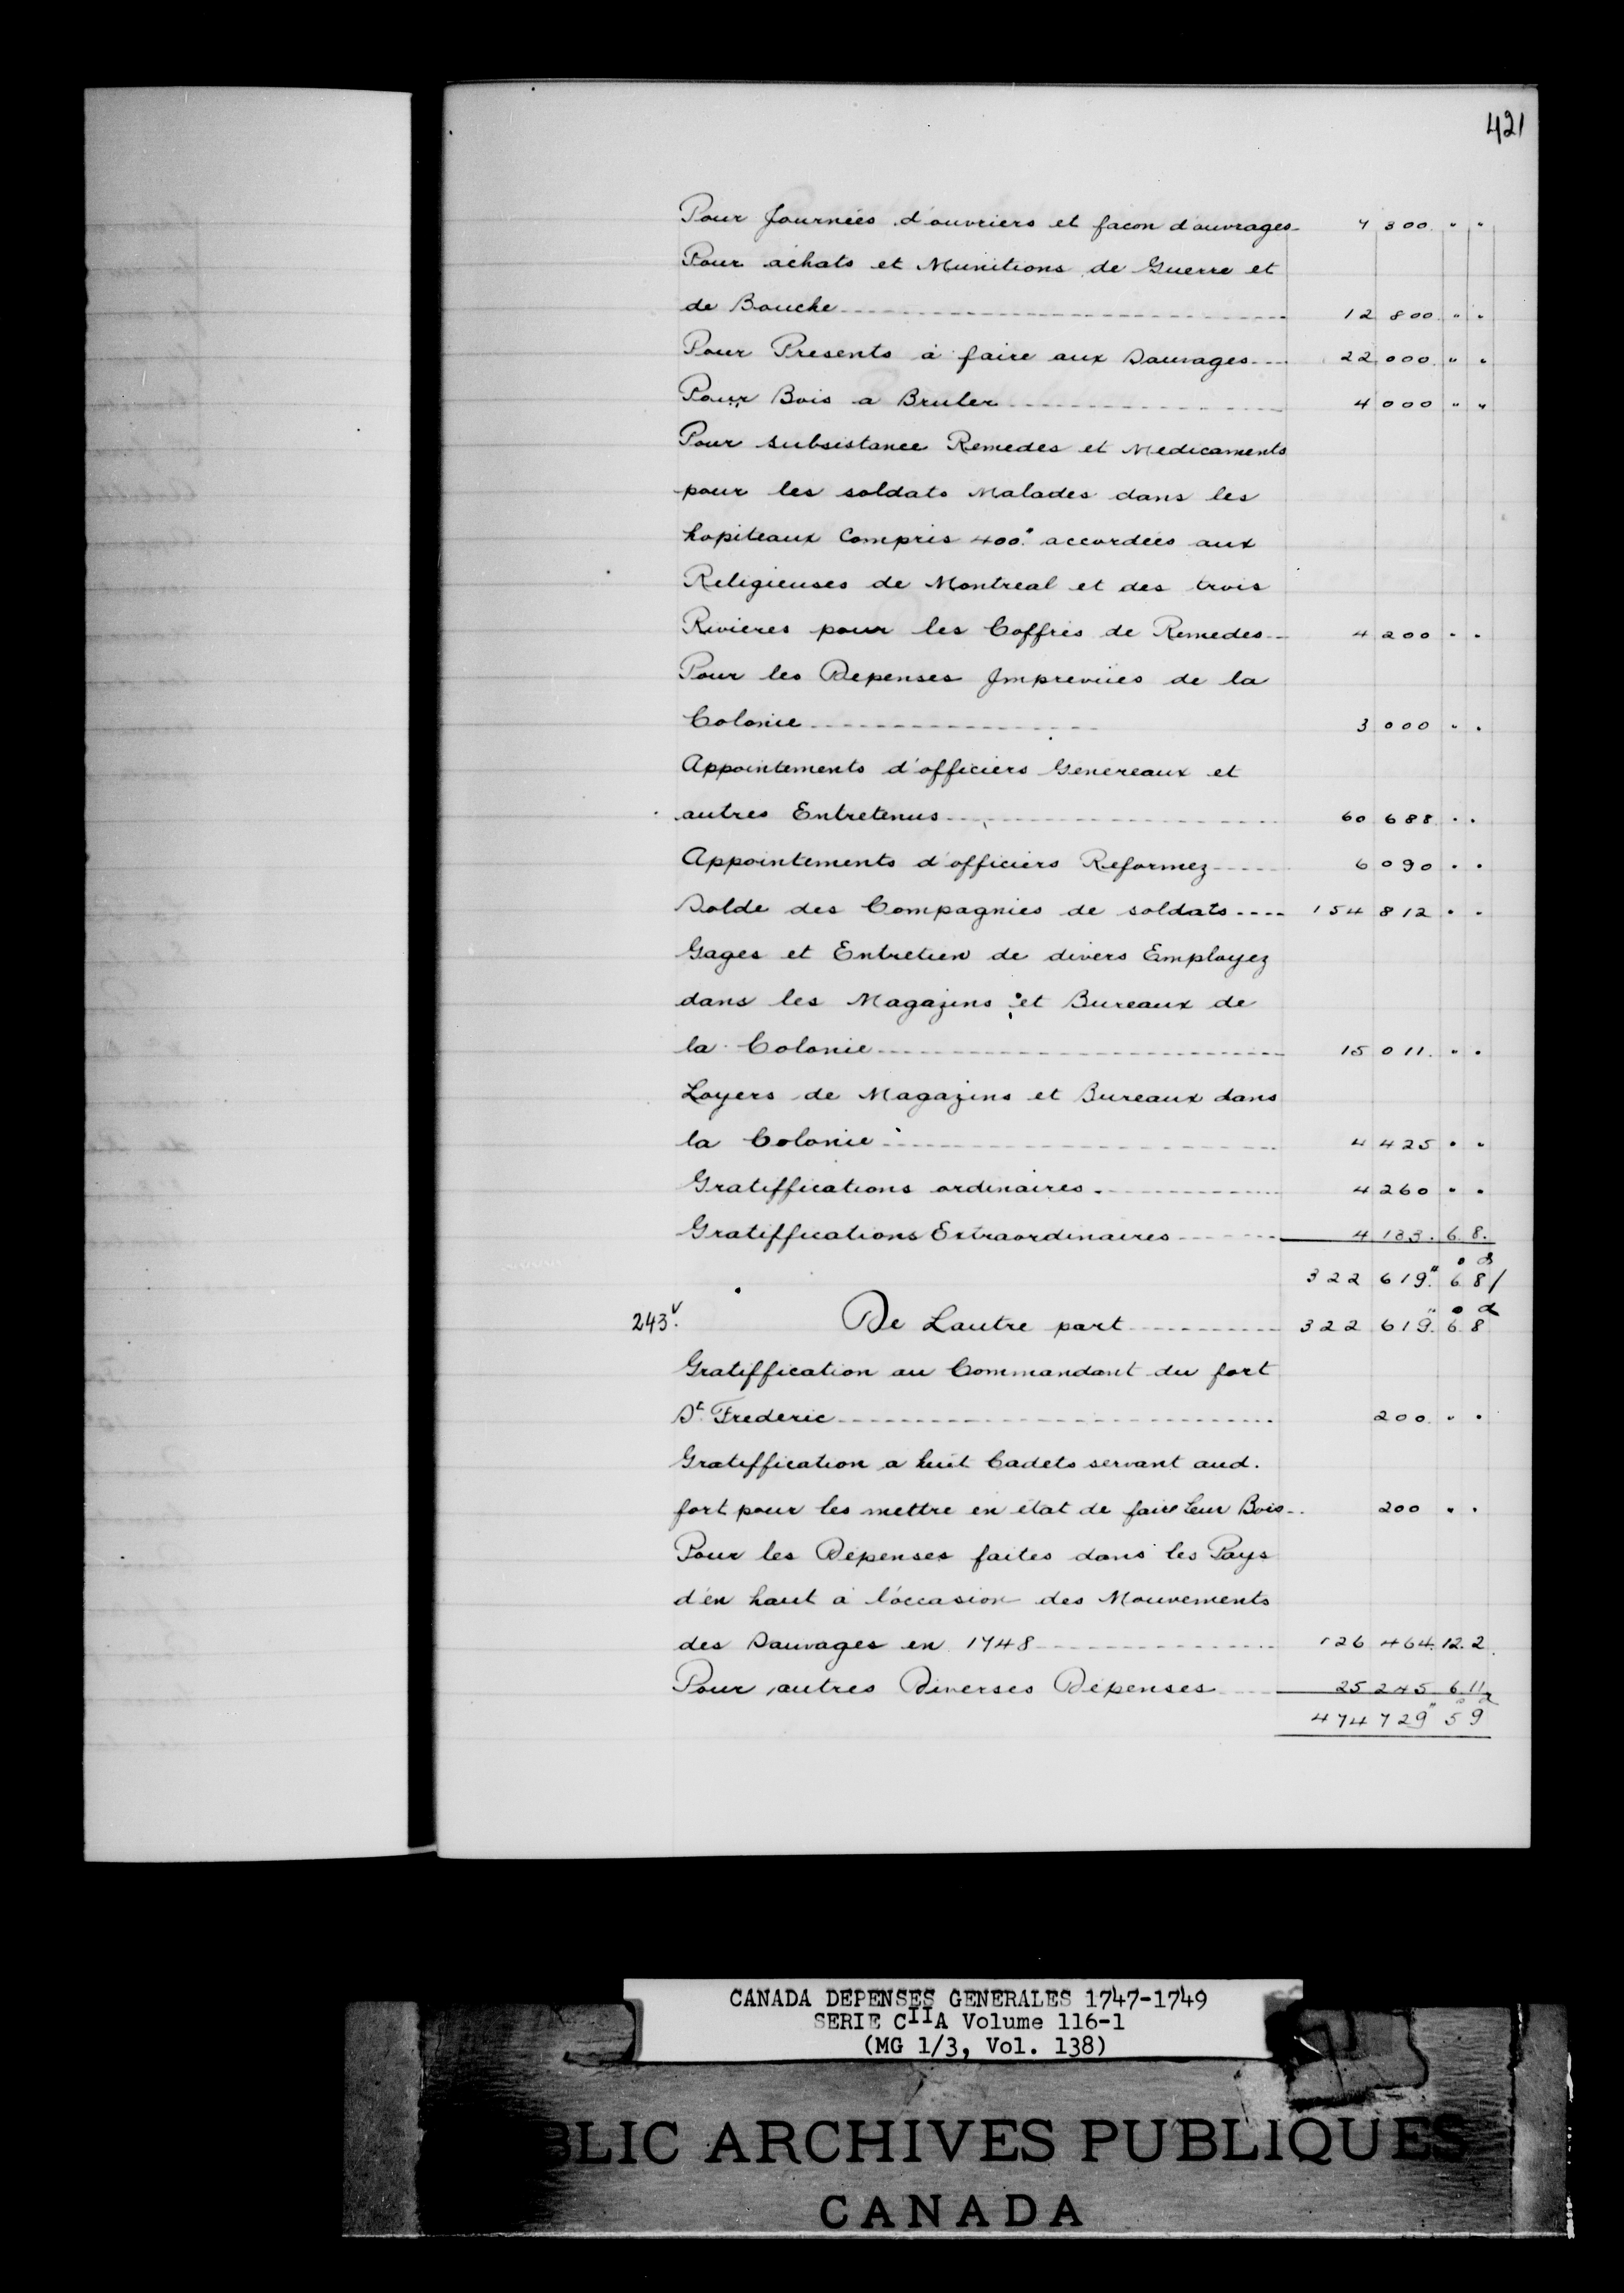 421
Pour Journées d'ouvriers et facon d'ouvrages 7 300 " "
Pour achats et Munitions de Guerre et
de Bouche 12 800 " "
Pour Presents à faire aux Sauvages 22 000 " "
Pour Bois a Bruler 4 000 " "
Pour subsistance Remedes et Medicaments
pour les soldats Malades dans les
hopiteaux Compris 400." accordées aux
Religieuses de Montreal et des trois
Rivieres pour les Coffres de Remedes 4 200 " "
Pour les Depenses Imprevües de la
Colonie 3 000 " "
Appointements d'officiers Genereaux et
autres Entretenus 60 688 " "
Appointements d'officiers Reformez 6 090 " "
Solde des Compagnies de soldats 154 812 " "
Gages et Entretien de divers Employez
dans les Magazins et Bureaux de
la Colonie 15 011 " "
Loyers de Magazins et Bureaux dans
la Colonie 4 425 " "
Gratiffications ordinaires 4 260 " "
Gratiffications Extraordinaires 4 133. 6 8.
322 619." 6s 8d/
243v. De Lautre part 322 619." 6s 8d
Gratiffication au Commandant du fort
St. Frederic 200 " "
Gratiffication a huit Cadets servant aud.
fort pour les mettre en état de faire leur Bois 200 " "
Pour les Dépenses faites dans les Pays
d'en haut à l'occasion des Mouvements
des Sauvages en 1748 126 464. 12. 2.
Pour autres Diverses Dépenses 25 245 6 11
474 729" 5s 9d
CANADA DEPENSES GENERALES 1747-1749
SERIE CIIA Volume 116-1
(MG 1/3, Vol. 138)
BLIC ARCHIVES PUBLIQUES
CANADA